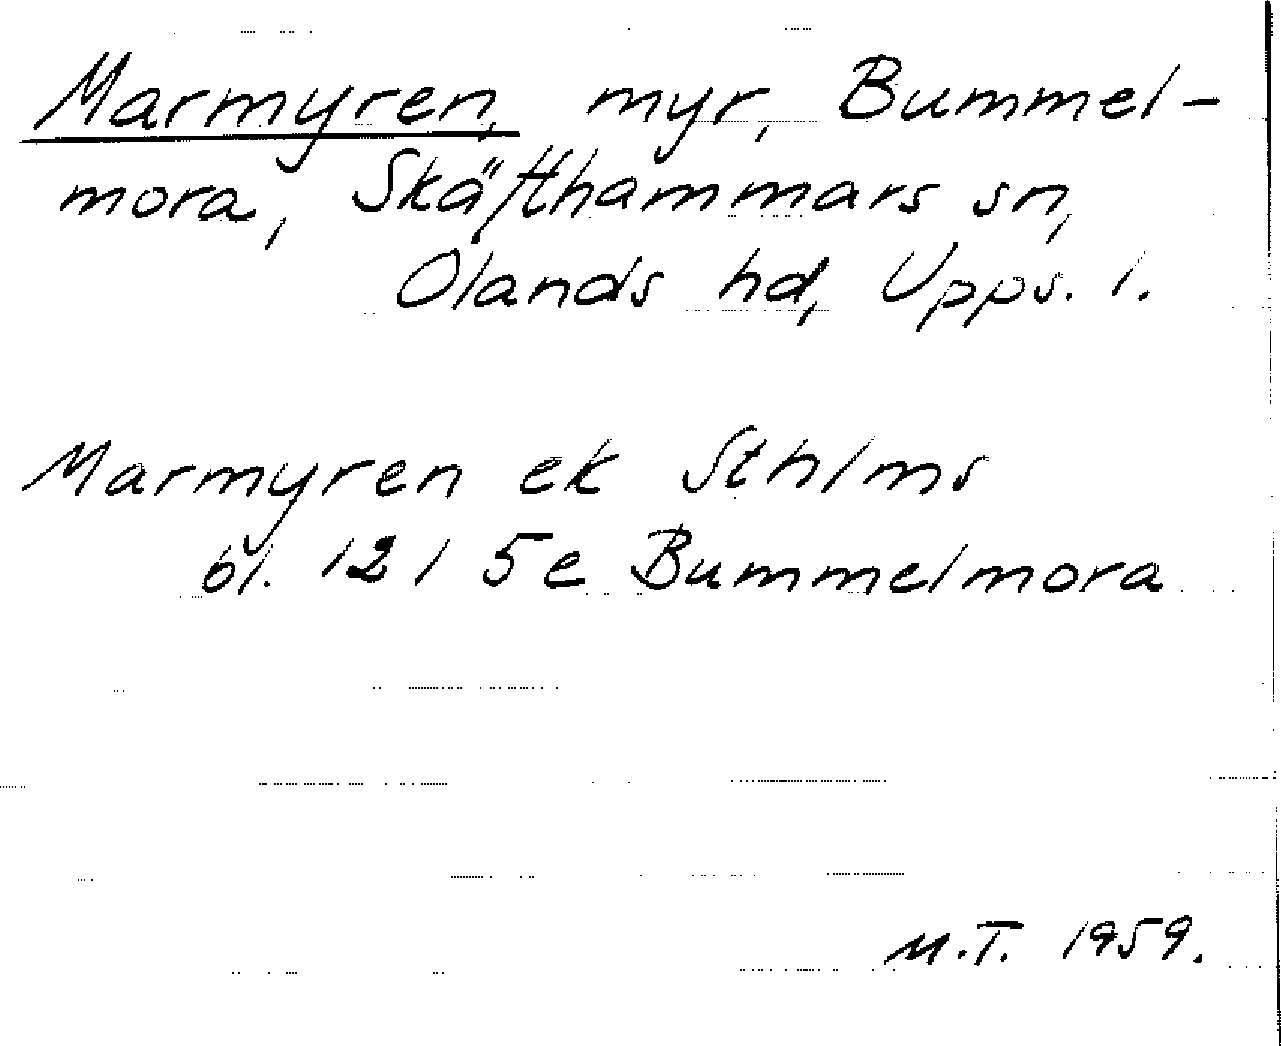 Marmyren, myr, Bummel-
mora, Skäfthammars sn,
Olands hd, Upps. l.
Marmyren ek Sthlms
bl. 121 5e Bummelmora
M.T. 1959.